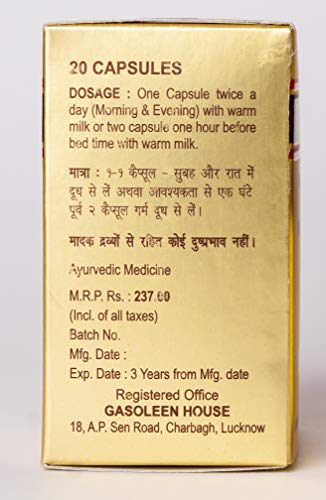 20 CAPSULES
DOSAGE : One Capsule twice a
day (Morning & Evening) with warm
milk or two capsule one hour before
bed time with warm milk.
मात्रा : १-१ कैप्सूल - सुबह और रात में
दूध से लें अथवा आवश्यकता से एक घंटे
पूर्व २ कैप्सूल गर्म दूध से लें।
मादक द्रव्यों से रहित कोई दुष्प्रभाव नहीं।
Ayurvedic Medicine
M.R.P. Rs. : 237.00
(Incl. of all taxes)
Batch No.
Mfg. Date :
Exp. Date : 3 Years from Mfg. date
Registered Office
GASOLEEN HOUSE
18, A.P. Sen Road, Charbagh, Lucknow